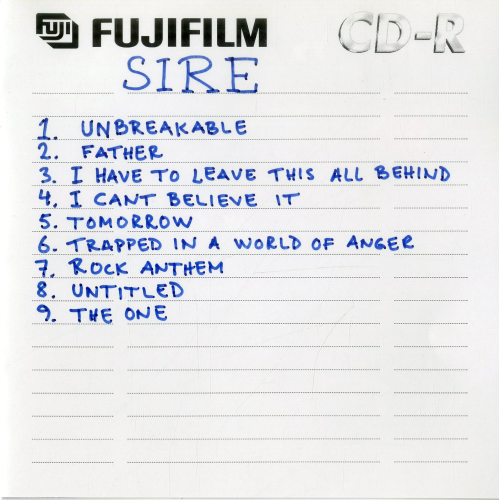 FUJI FUJIFILM CD-R
SIRE
1. UNBREAKABLE
2. FATHER
3. I HAVE TO LEAVE THIS ALL BEHIND
4. I CANT BELIEVE IT
5. TOMORROW
6. TRAPPED IN A WORLD OF ANGER
7. ROCK ANTHEM
8. UNTITLED
9. THE ONE